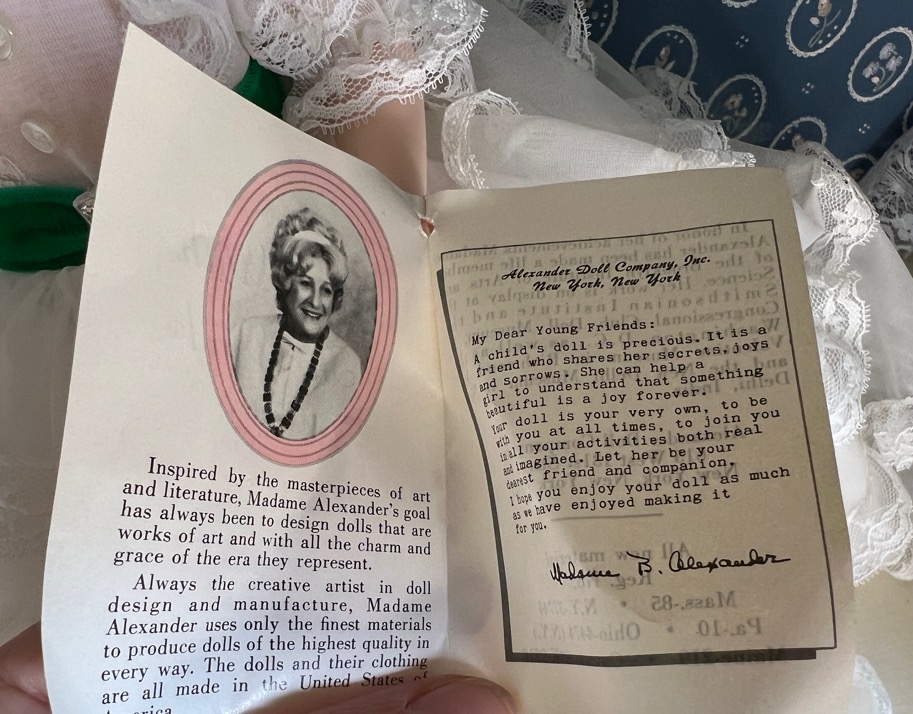 Inspired by the masterpieces of art
and literature, Madame Alexander's goal
has always been to design dolls that are
works of art and with all the charm and
grace of the era they represent.
Always the creative artist in doll
design and manufacture, Madame
Alexander uses only the finest materials
to produce dolls of the highest quality in
every way. The dolls and their clothing
are all made in the United States of
America.
Alexander Doll Company, Inc.
New York, New York
My Dear Young Friends:
A child's doll is precious. It is a
friend who shares her secrets, joys
and sorrows. She can help a
girl to understand that something
beautiful is a joy forever.
Your doll is your very own, to be
with you at all times, to join you
in all your activities both real
and imagined. Let her be your
dearest friend and companion.
I hope you enjoy your doll as much
as we have enjoyed making it
for you.
Madame B. Alexander